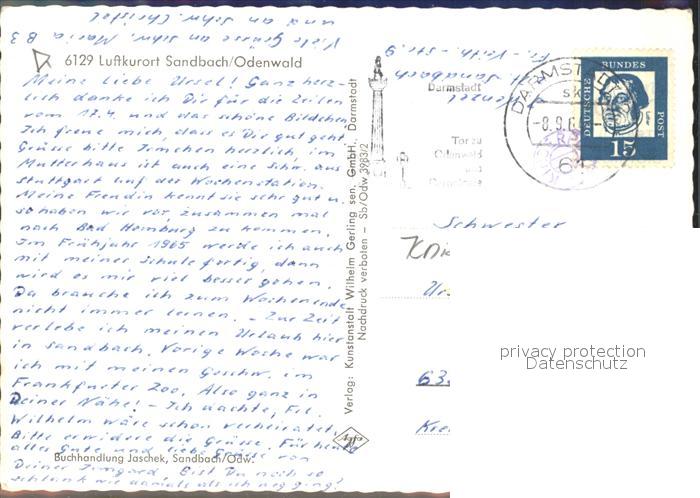 Viele Grüße an Schw. Maria B 3
und an Schw. Christel
6129 Luftkurort Sandbach/Odenwald
Meine liebe Ursel! Ganz herz-
lich danke ich Dir für die Zeilen
vom 17.4. und das schöne Bildchen.
Ich freue mich, dass es Dir gut geht.
Grüsse bitte herzlich, im
Mutterhaus ist auch eine Schw. aus
Stuttgart auf der Wochenstation.
Meine Freundin kennt sie sehr gut u.
so haben wir vor, zusammen mal
nach Bad Homburg zu kommen.
Im Frühjahr 1965 werde ich auch
mit meiner Schule fertig, dann
wird es mir viel besser gehen.
Da brauche ich zum Wochenende
nicht immer lernen. - Zur Zeit
verlebe ich meinen Urlaub hier
in Sandbach. Vorige Woche war
ich mit meinen Geschw. im
Frankfurter Zoo. Also ganz in
Deiner Nähe! - Ich dachte, Frl.
Wilhelm wäre schon verheiratet.
Bitte erwidere die Grüsse. Für heute
alles Gute und liebe Grüsse von
Deiner Irmgard. Bist Du noch so
schlank wie damals als ich weg ging?
Buchhandlung Jaschek, Sandbach/Odw.
Verlag: Kunstanstalt Wilhelm Gerling sen. GmbH, Darmstadt
Nachdruck verboten – Sb/Odw 3983/2
Agfa
Wenzel
Sandbach
Fr.-Veith-Str. 9
Darmstadt
Tor zu
Odenwald
und
DARMSTADT
DEUTSCHE
BUNDES
POST
15
Schwester
63
Kre
privacy protection
Datenschutz